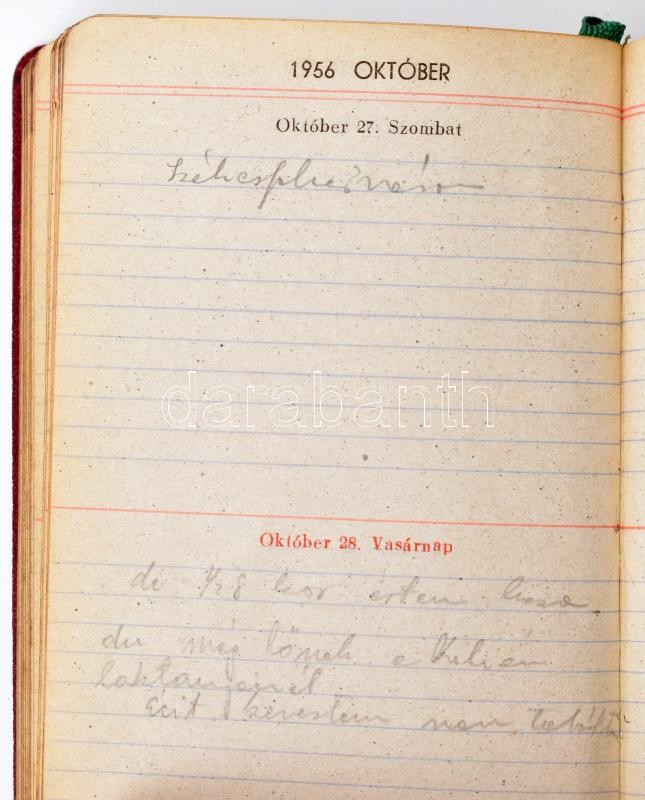 1956 OKTÓBER
Október 27. Szombat
Székesfehérvár
darabanth
Október 28. Vasárnap
de 1/2 8 kor értem haza
du még lőnek a Kilián
laktanyánál
kerestem nem